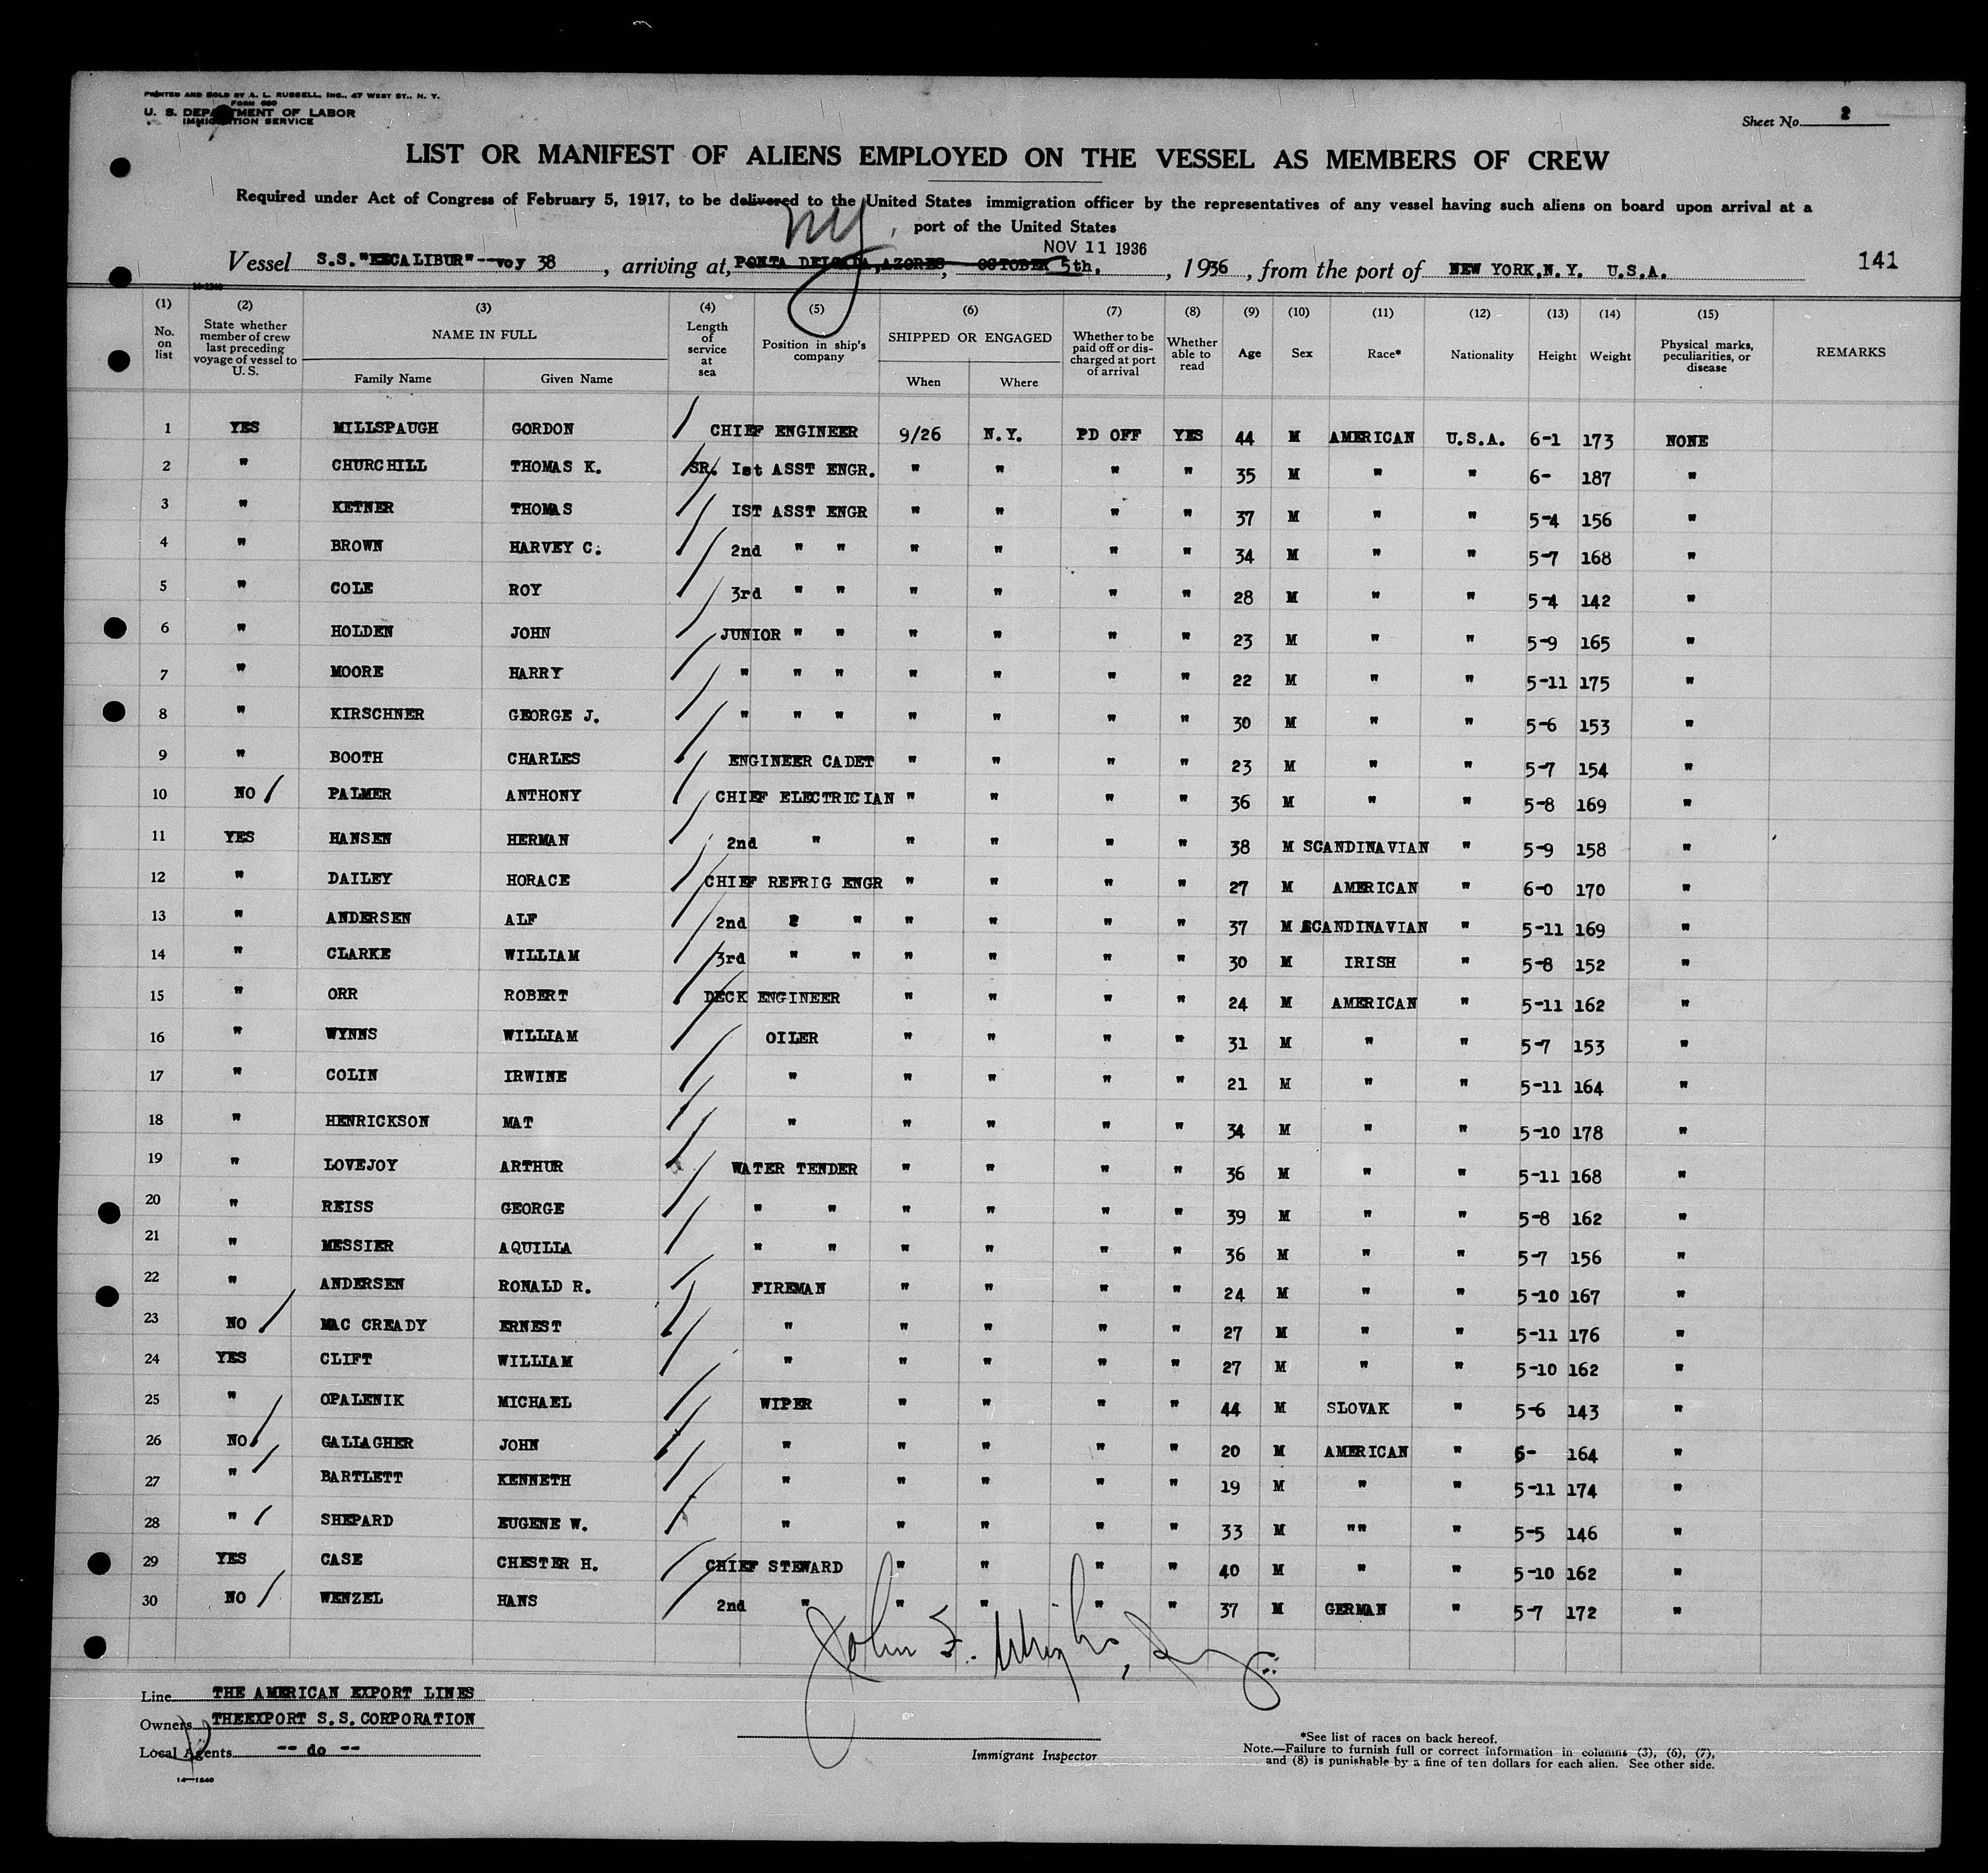 PRINTED AND SOLD BY A. L. RUSSELL, INC., 47 WEST ST., N. Y.
FORM 680
U. S. DEPARTMENT OF LABOR
IMMIGRATION SERVICE
Sheet No. 2
LIST OR MANIFEST OF ALIENS EMPLOYED ON THE VESSEL AS MEMBERS OF CREW
Required under Act of Congress of February 5, 1917, to be delivered to the United States immigration officer by the representatives of any vessel having such aliens on board upon arrival at a
port of the United States
NY.
NOV 11 1936
Vessel S.S."EXCALIBUR"--voy 38, arriving at, PONTA DELGADA,AZORES, OCTOBER 5th, , 1936, from the port of NEW YORK,N.Y. U.S.A. 141
(1) No. on list (2) State whether member of crew last preceding voyage of vessel to U.S. (3) NAME IN FULL Family Name Given Name (4) Length of service at sea (5) Position in ship's company (6) SHIPPED OR ENGAGED When Where (7) Whether to be paid off or discharged at port of arrival (8) Whether able to read (9) Age (10) Sex (11) Race* (12) Nationality (13) Height (14) Weight (15) Physical marks, peculiarities, or disease REMARKS
1 YES MILLSPAUGH GORDON CHIEF ENGINEER 9/26 N.Y. PD OFF YES 44 M AMERICAN U.S.A. 6-1 173 NONE
2 " CHURCHILL THOMAS K. SR. Ist ASST ENGR. " " " " 35 M " " 6- 187 "
3 " KETNER THOMAS IST ASST ENGR " " " " 37 M " " 5-4 156 "
4 " BROWN HARVEY C. 2nd " " " " " " 34 M " " 5-7 168 "
5 " COLE ROY 3rd " " " " " " 28 M " " 5-4 142 "
6 " HOLDEN JOHN JUNIOR " " " " " " 23 M " " 5-9 165 "
7 " MOORE HARRY " " " " " " " 22 M " " 5-11 175 "
8 " KIRSCHNER GEORGE J. " " " " " " " 30 M " " 5-6 153 "
9 " BOOTH CHARLES ENGINEER CADET " " " " 23 M " " 5-7 154 "
10 NO PALMER ANTHONY CHIEF ELECTRICIAN " " " " 36 M " " 5-8 169 "
11 YES HANSEN HERMAN 2nd " " " " " 38 M SCANDINAVIAN " 5-9 158 "
12 " DAILEY HORACE CHIEF REFRIG ENGR " " " " 27 M AMERICAN " 6-0 170 "
13 " ANDERSEN ALF 2nd " " " " " " 37 M SCANDINAVIAN " 5-11 169 "
14 " CLARKE WILLIAM 3rd " " " " " " 30 M IRISH " 5-8 152 "
15 " ORR ROBERT DECK ENGINEER " " " " 24 M AMERICAN " 5-11 162 "
16 " WYNNS WILLIAM OILER " " " " 31 M " " 5-7 153 "
17 " COLIN IRWINE " " " " " 21 M " " 5-11 164 "
18 " HENRICKSON MAT " " " " " 34 M " " 5-10 178 "
19 " LOVEJOY ARTHUR WATER TENDER " " " " 36 M " " 5-11 168 "
20 " REISS GEORGE " " " " " " 39 M " " 5-8 162 "
21 " MESSIER AQUILLA " " " " " " 36 M " " 5-7 156 "
22 " ANDERSEN RONALD R. FIREMAN " " " " 24 M " " 5-10 167 "
23 NO MAC CREADY ERNEST " " " " " 27 M " " 5-11 176 "
24 YES CLIFT WILLIAM " " " " " 27 M " " 5-10 162 "
25 " OPALENIK MICHAEL WIPER " " " " 44 M SLOVAK " 5-6 143 "
26 NO GALLAGHER JOHN " " " " " 20 M AMERICAN " 6- 164 "
27 " BARTLETT KENNETH " " " " " 19 M " " 5-11 174 "
28 " SHEPARD EUGENE W. " " " " " 33 M "" " 5-5 146 "
29 YES CASE CHESTER H. CHIEF STEWARD " " " " 40 M " " 5-10 162 "
30 NO WENZEL HANS 2nd " " " " " 37 M GERMAN " 5-7 172 "
John F.
Line THE AMERICAN EXPORT LINES
Owners THEEXPORT S.S.CORPORATION
Local Agents -- do --
Immigrant Inspector
*See list of races on back hereof.
Note.—Failure to furnish full or correct information in columns (3), (6), (7),
and (8) is punishable by a fine of ten dollars for each alien. See other side.
14—1240